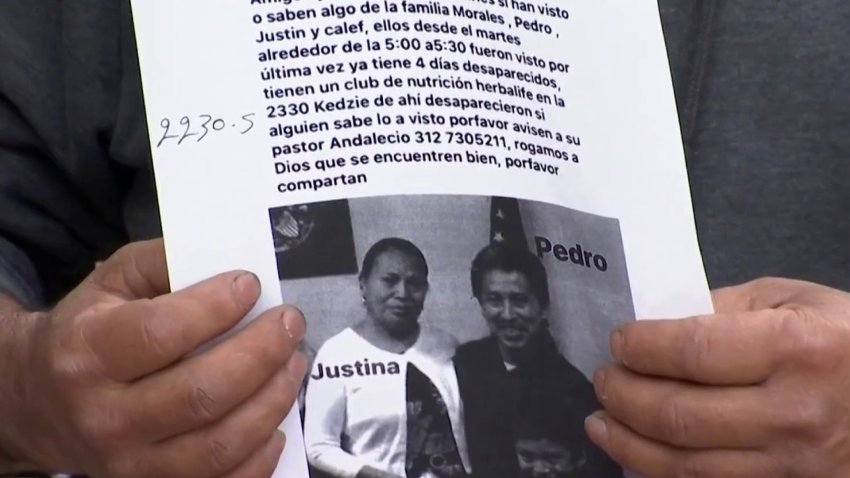 si han visto
o saben algo de la familia Morales , Pedro ,
Justin y calef, ellos desde el martes
alrededor de la 5:00 a5:30 fueron visto por
última vez ya tiene 4 días desaparecidos,
tienen un club de nutrición herbalife en la
2330 Kedzie de ahí desaparecieron si
alguien sabe lo a visto porfavor avisen a su
pastor Andalecio 312 7305211, rogamos a
Dios que se encuentren bien, porfavor
compartan
2230.S
Pedro
Justina